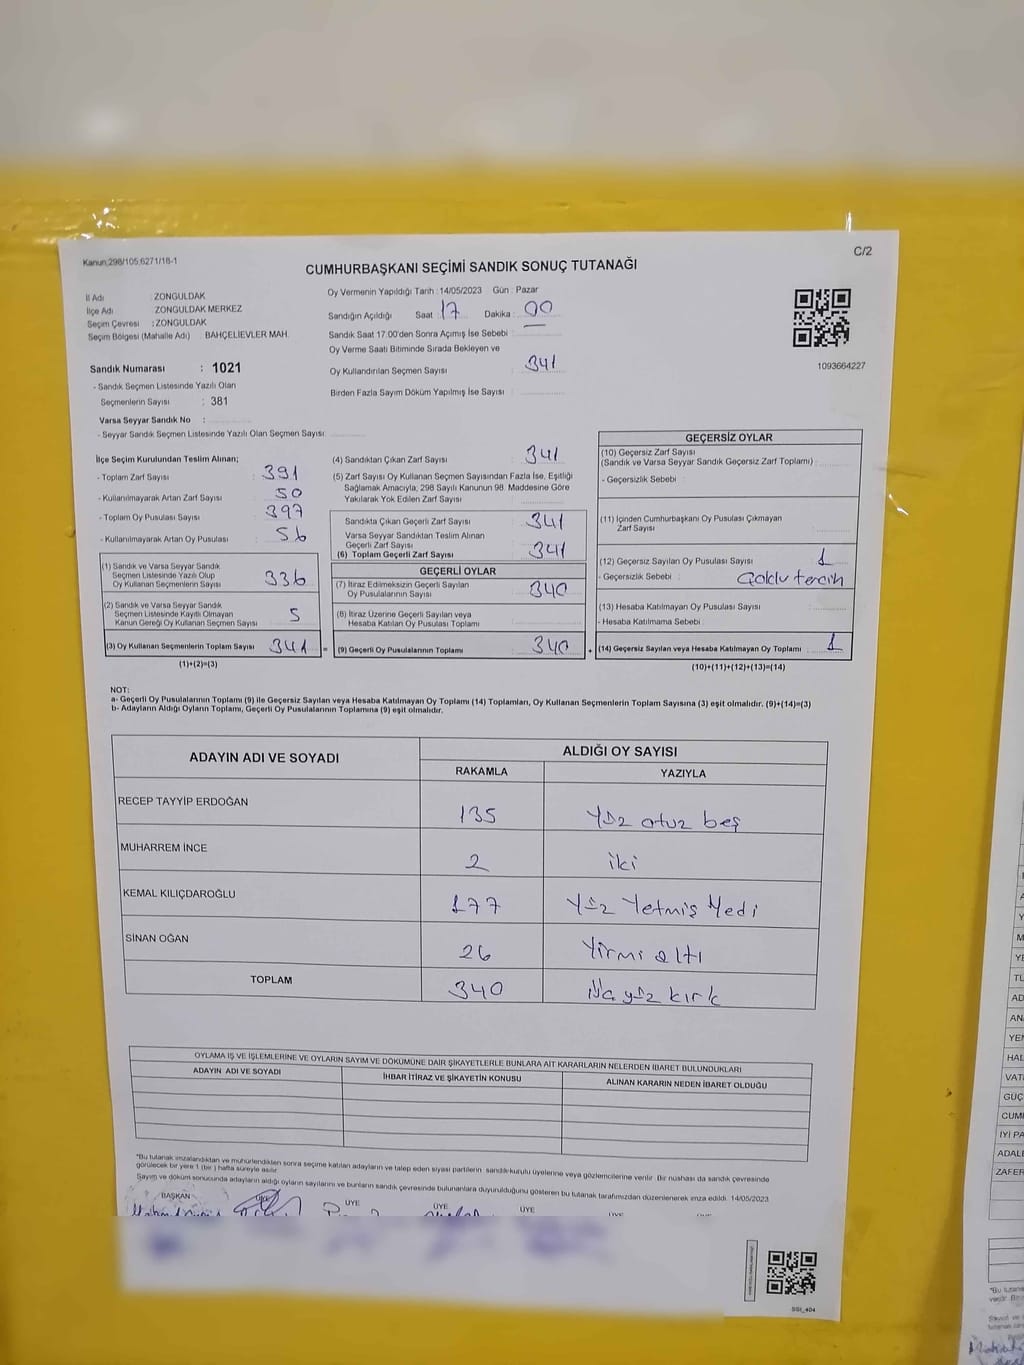 Kanun;298/105;6271/18-1
C/2
CUMHURBAŞKANI SEÇİMİ SANDIK SONUÇ TUTANAĞI
İl Adı : ZONGULDAK
İlçe Adı : ZONGULDAK MERKEZ
Seçim Çevresi : ZONGULDAK
Seçim Bölgesi (Mahalle Adı) : BAHÇELİEVLER MAH.
Oy Vermenin Yapıldığı Tarih :14/05/2023 Gün : Pazar
Sandığın Açıldığı Saat : 17 Dakika : 00
Sandık Saat 17.00'den Sonra Açımış İse Sebebi :
Oy Verme Saati Bitiminde Sırada Bekleyen ve
Oy Kullandırılan Seçmen Sayısı : 341
Birden Fazla Sayım Döküm Yapılmış İse Sayısı :
1093664227
Sandık Numarası : 1021
- Sandık Seçmen Listesinde Yazılı Olan
Seçmenlerin Sayısı : 381
Varsa Seyyar Sandık No :
- Seyyar Sandık Seçmen Listesinde Yazılı Olan Seçmen Sayısı:
İlçe Seçim Kurulundan Teslim Alınan;
- Toplam Zarf Sayısı : 391
- Kullanılmayarak Artan Zarf Sayısı : 50
- Toplam Oy Pusulası Sayısı : 397
- Kullanılmayarak Artan Oy Pusulası : 56
(1) Sandık ve Varsa Seyyar Sandık
Seçmen Listesinde Yazılı Olup
Oy Kullanan Seçmenlerin Sayısı : 336
(2) Sandık ve Varsa Seyyar Sandık
Seçmen Listesinde Kayıtlı Olmayan
Kanun Gereği Oy Kullanan Seçmen Sayısı : 5
(3) Oy Kullanan Seçmenlerin Toplam Sayısı : 341 =
(1)+(2)=(3)
(4) Sandıktan Çıkan Zarf Sayısı : 341
(5) Zarf Sayısı Oy Kullanan Seçmen Sayısından Fazla İse, Eşitliği
Sağlamak Amacıyla; 298 Sayılı Kanunun 98. Maddesine Göre
Yakılarak Yok Edilen Zarf Sayısı :
Sandıkta Çıkan Geçerli Zarf Sayısı : 341
Varsa Seyyar Sandıktan Teslim Alınan
Geçerli Zarf Sayısı
(6) Toplam Geçerli Zarf Sayısı : 341
GEÇERLİ OYLAR
(7) İtiraz Edilmeksizin Geçerli Sayılan
Oy Pusulalarının Sayısı : 340
(8) İtiraz Üzerine Geçerli Sayılan veya
Hesaba Katılan Oy Pusulası Toplamı :
(9) Geçerli Oy Pusulalarının Toplamı : 340 +
GEÇERSİZ OYLAR
(10) Geçersiz Zarf Sayısı
(Sandık ve Varsa Seyyar Sandık Geçersiz Zarf Toplamı) :
- Geçersizlik Sebebi :
(11) İçinden Cumhurbaşkanı Oy Pusulası Çıkmayan
Zarf Sayısı :
(12) Geçersiz Sayılan Oy Pusulası Sayısı : 1
- Geçersizlik Sebebi : Çoklu tercih
(13) Hesaba Katılmayan Oy Pusulası Sayısı :
- Hesaba Katılmama Sebebi :
(14) Geçersiz Sayılan veya Hesaba Katılmayan Oy Toplamı : 1
(10)+(11)+(12)+(13)=(14)
NOT:
a- Geçerli Oy Pusulalarının Toplamı (9) ile Geçersiz Sayılan veya Hesaba Katılmayan Oy Toplamı (14) Toplamları, Oy Kullanan Seçmenlerin Toplam Sayısına (3) eşit olmalıdır. (9)+(14)=(3)
b- Adayların Aldığı Oyların Toplamı, Geçerli Oy Pusulalarının Toplamına (9) eşit olmalıdır.
ADAYIN ADI VE SOYADI ALDIĞI OY SAYISI
RAKAMLA YAZIYLA
RECEP TAYYİP ERDOĞAN 135 yüz otuz beş
MUHARREM İNCE 2 iki
KEMAL KILIÇDAROĞLU 177 yüz Yetmiş Yedi
SİNAN OĞAN 26 Yirmi altı
TOPLAM 340 üç yüz kırk
OYLAMA İŞ VE İŞLEMLERİNE VE OYLARIN SAYIM VE DÖKÜMÜNE DAİR ŞİKAYETLERLE BUNLARA AİT KARARLARIN NELERDEN İBARET BULUNDUKLARI
ADAYIN ADI VE SOYADI İHBAR İTİRAZ VE ŞİKAYETİN KONUSU ALINAN KARARIN NEDEN İBARET OLDUĞU
*Bu tutanak imzalandıktan ve mühürlendikten sonra seçime katılan adayların ve talep eden siyasi partilerin sandık kurulu üyelerine veya gözlemcilerine verilir. Bir nüshası da sandık çevresinde
görülecek bir yere 1 (bir ) hafta süreyle asılır.
Sayım ve döküm sonucunda adayların aldığı oyların sayılarını ve bunların sandık çevresinde bulunanlara duyurulduğunu gösteren bu tutanak tarafımızdan düzenlenerek imza edildi. 14/05/2023
BAŞKAN ÜYE ÜYE ÜYE ÜYE ÜYE
SSI_404